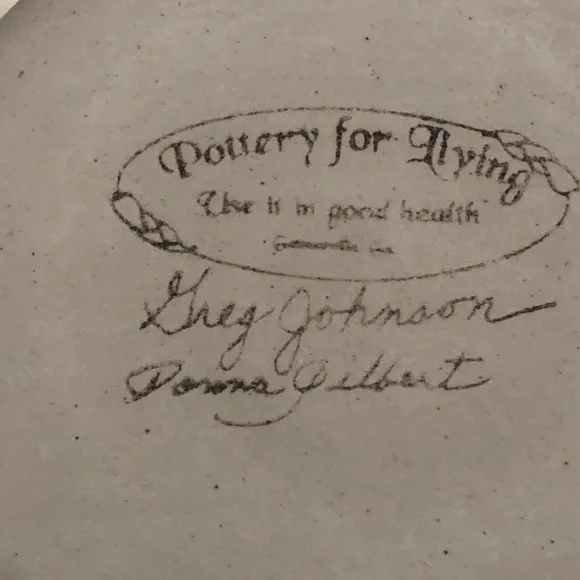 Pottery for Flying
Use it in good health
Greg Johnson
Donna Gilbert